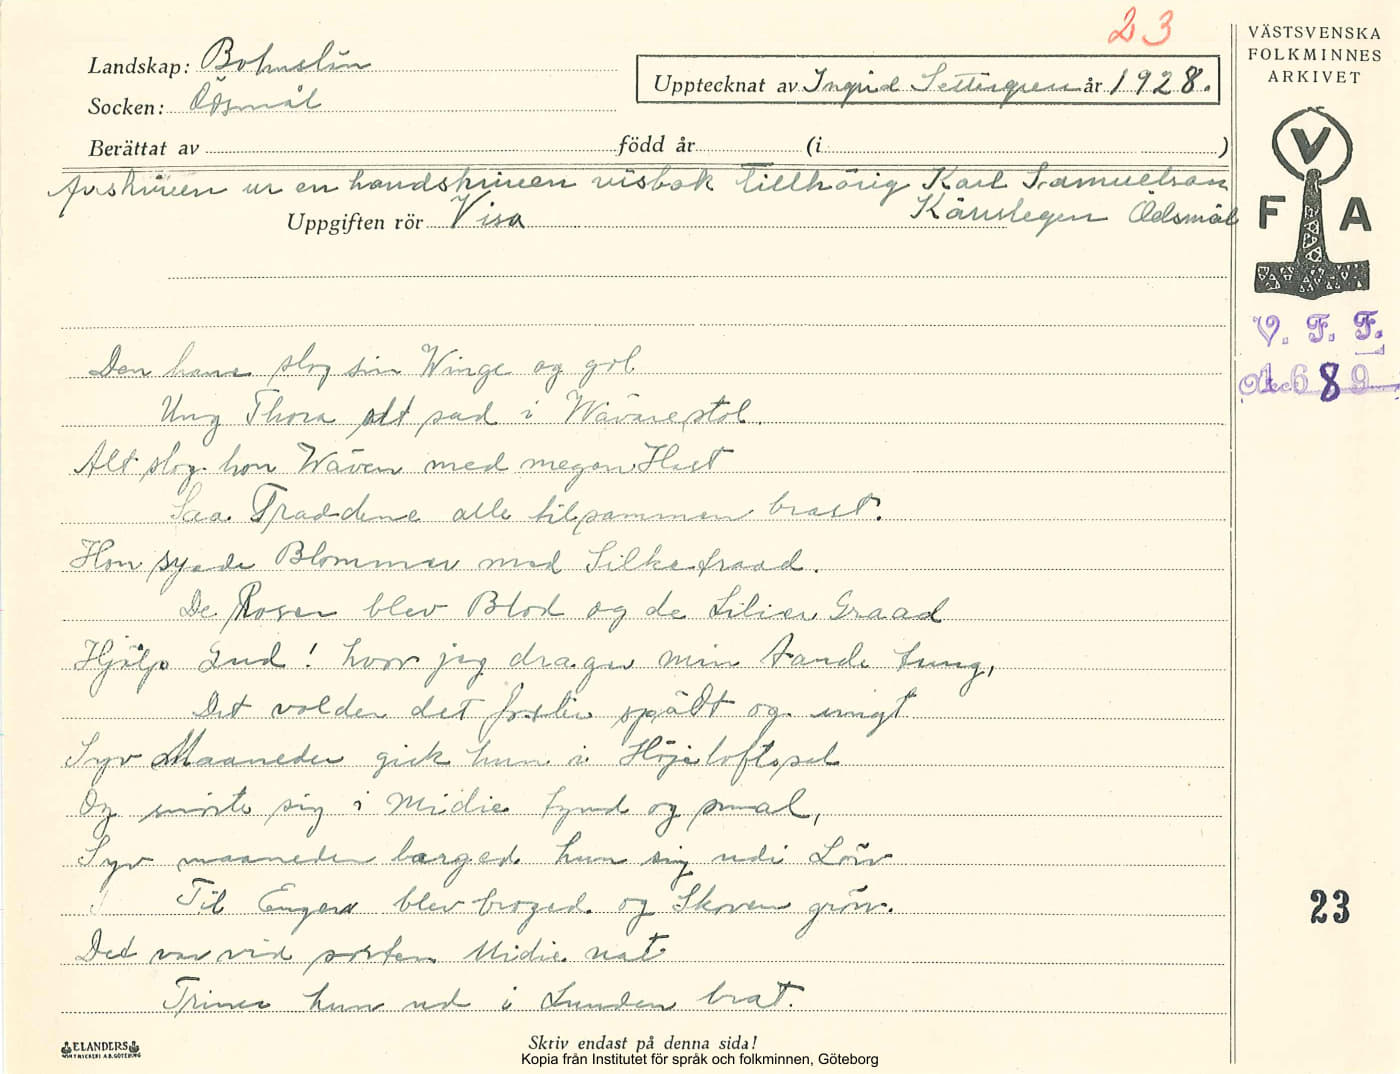 23
VÄSTSVENSKA
FOLKMINNES
ARKIVET
Landskap: Bohuslän
Upptecknat av Ingrid Settergren år 1928.
Socken: Ödsmål
Berättat av född år (i )
Avskriven ur en handskriven visbok tillhörig Karl Samuelson
Uppgiften rör Visa Kärrstegen Ödsmål
V
F A
V. F. F.
1689
Den hane slog sin Winge og gol
Ung Thora alt sad i Wävrestol.
Alt slog hon Wäven med megen Hast
Saa Traadene alle tilsammen brast.
Hon syede Blommer med Silketraad.
De Roser blev Blod og de Lilier Graad
Hjälp Gud! hvor jeg drager min Aande tung,
Det volder det spält og ungt
Syv Maaneder gick hun i Höjeloftssal
Og snörte sig i Midie tynd og smal,
Syv maaneder barged hun sig udi Löv
Til Engen blev broged og Skoven grön.
Det var vid sorten Midie nat
Triner hun ud i Lunden brat.
23
ELANDERS
BOKTRYCKERI A.B. GÖTEBORG
Skriv endast på denna sida!
Kopia från Institutet för språk och folkminnen, Göteborg